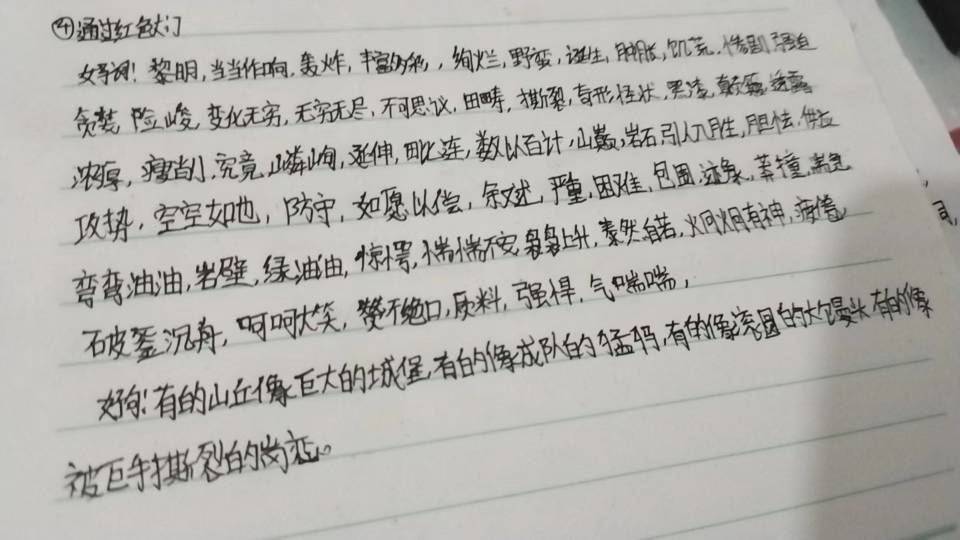 ④通过红色大门
好词:黎明,当当作响,轰炸,丰富多彩,绚烂,野蛮,诞生,肿胀,饥荒,惜别,强迫
贪婪 险峻,变化无穷,无穷无尽,不可思议,田畴,撕裂,奇形怪状,黑漆,颠簸,透露
浓厚,瘦削,究竟,嶙峋,延伸,毗连,数以百计,山巅,岩石,引人入胜,胆怯,
攻势,空空如也,防守,如愿以偿,叙述,严重,困难,包围,迹象,莽撞,
弯弯油油,岩壁,绿油油,惊愕,惴惴不安,袅袅上升,泰然自若,炯炯有神,疲惫
破釜沉舟,呵呵大笑,赞不绝口,质料,强悍,气喘喘,
好句:有的山丘像巨大的城堡,有的像成队的猛犸,有的像滚圆的大馒头,有的像
被巨手撕裂的岗峦。